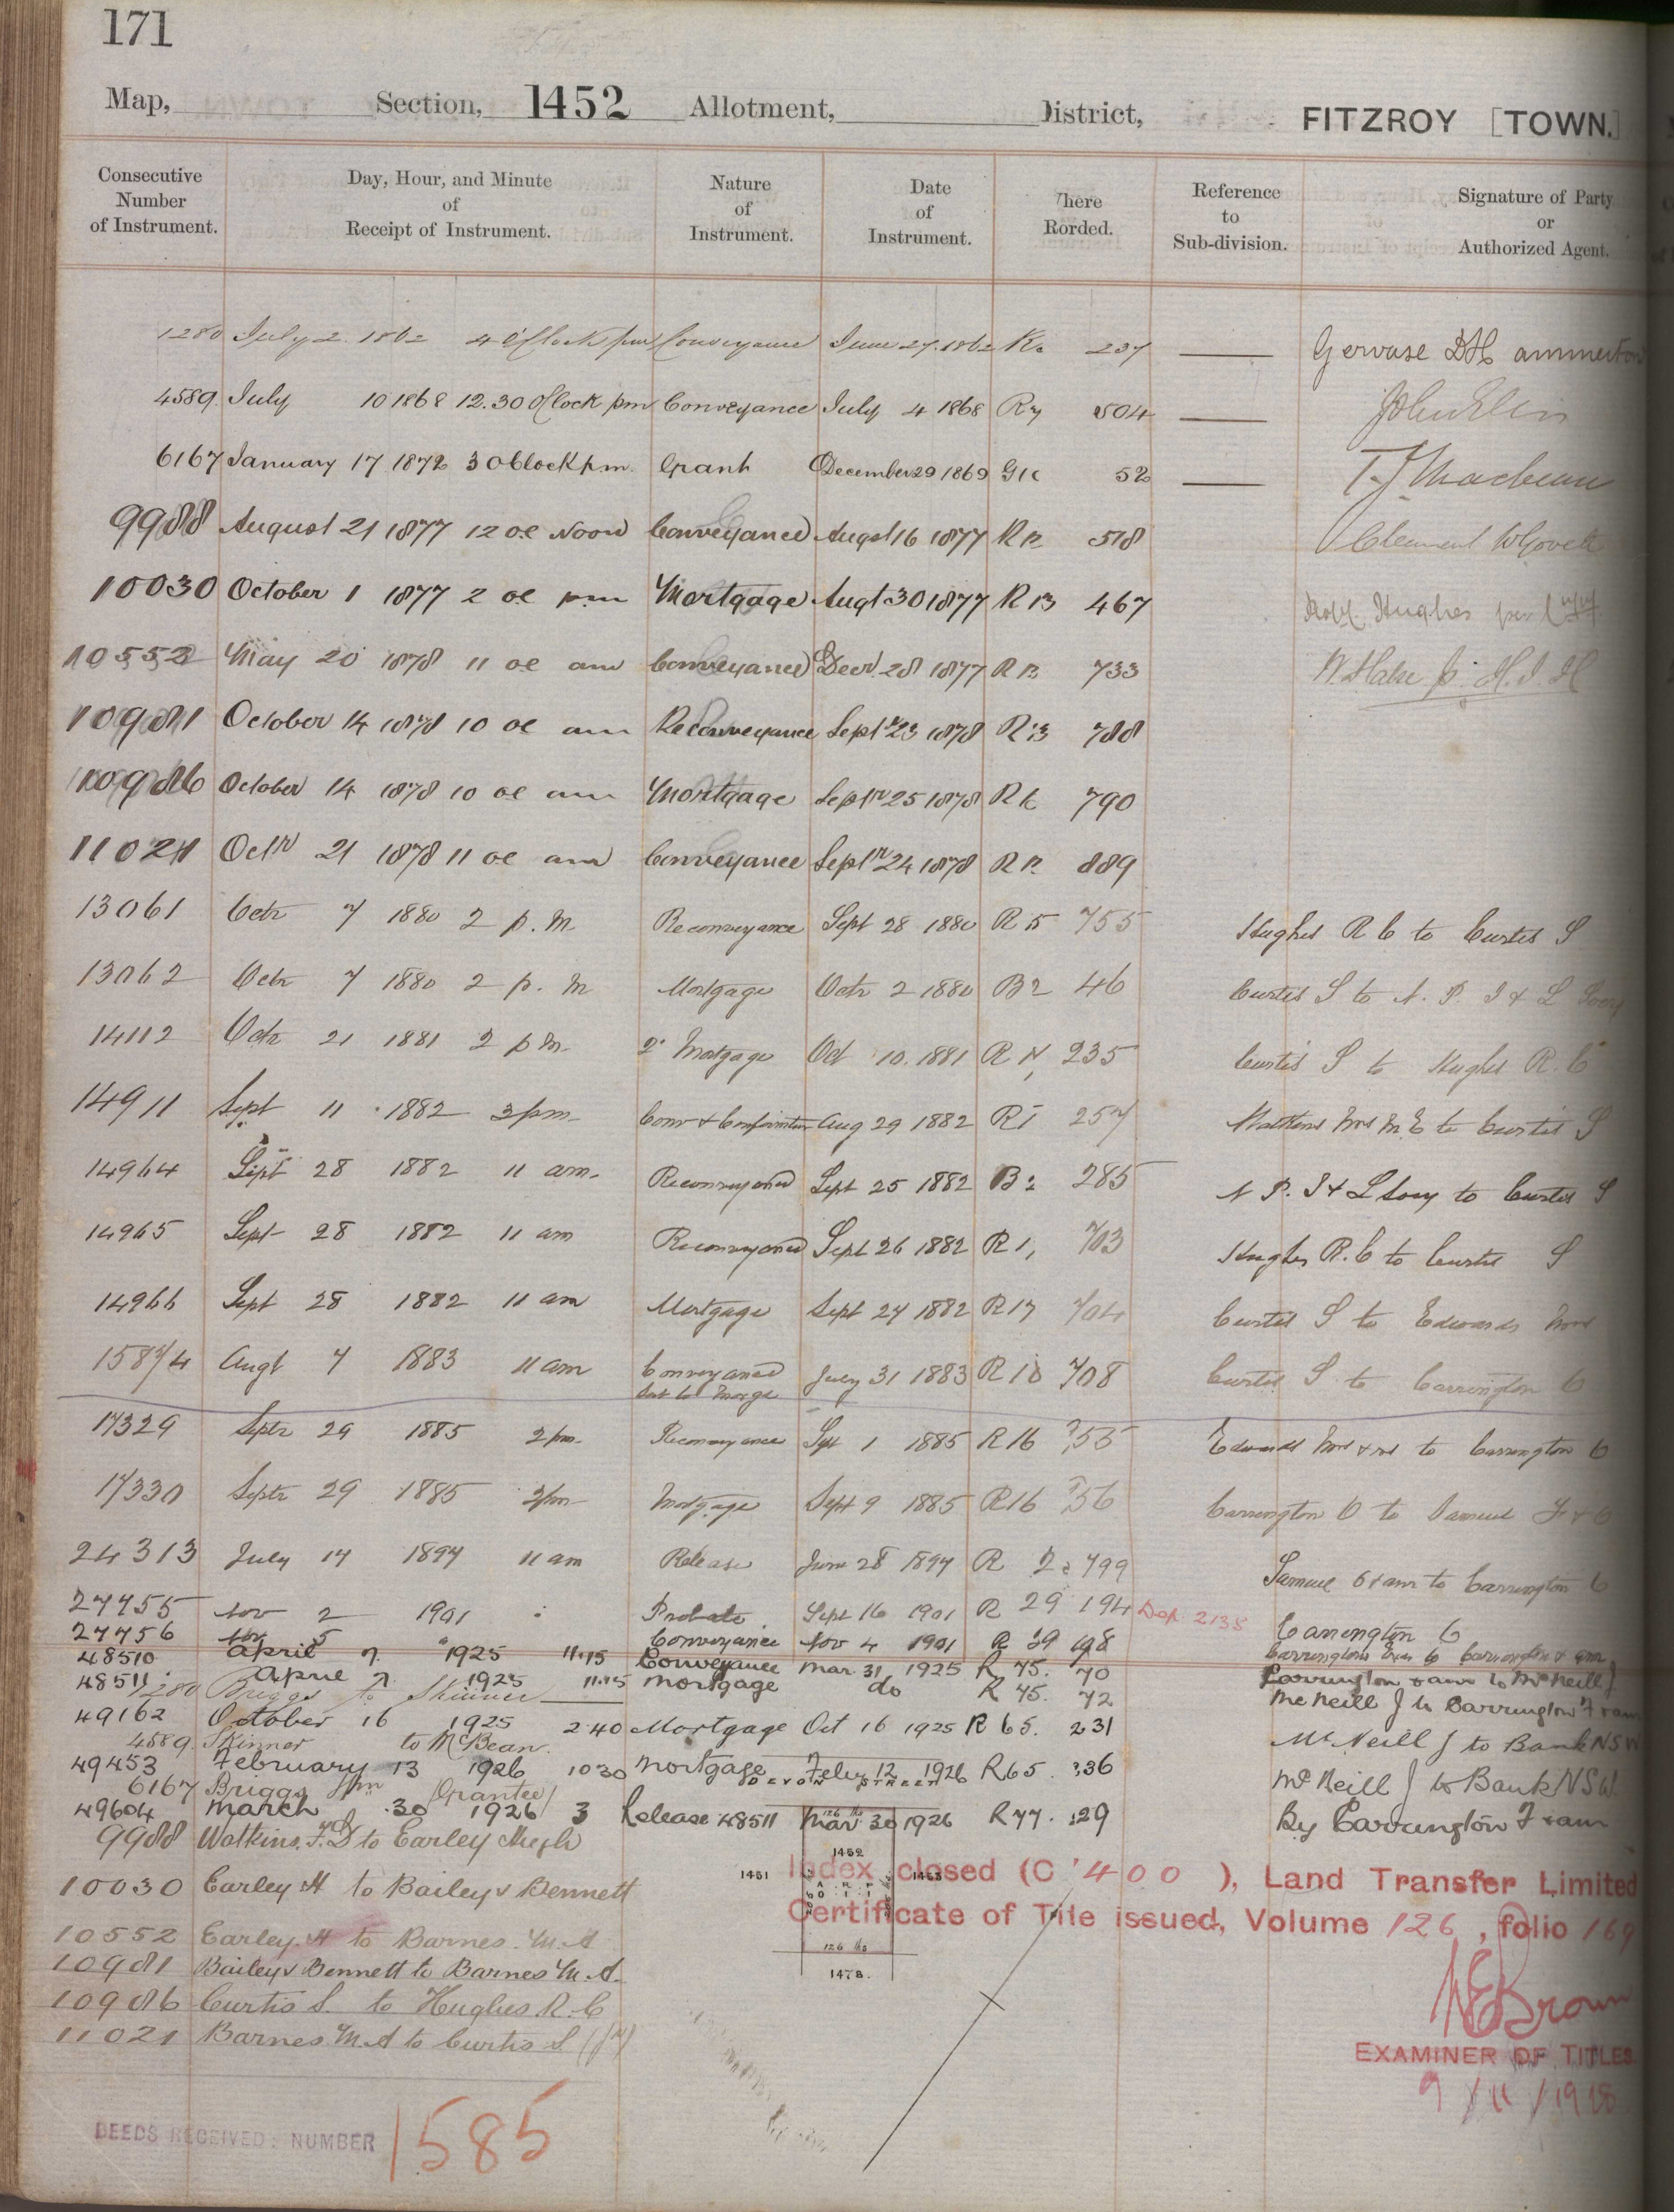 171
Map, Section, 1452 Allotment, District, FITZROY [TOWN.]
Consecutive Number of Instrument. Day, Hour, and Minute of Receipt of Instrument. Nature of Instrument. Date of Instrument. Where Recorded. Reference to Sub-division. Signature of Party or Authorized Agent.
1280 July 2. 1862 4 O'Clock pm Conveyance June 27. 1862 237 —
4589. July 10 1868 12.30 O'Clock pm Conveyance July 4 1868 R7 504 — John Ellis
6167 January 17 1872 3 O'Clock pm. Grant December 29 1869 52 —
9988 August 21 1877 12 oc Noon Conveyance Augst 16 1877 518 Clement W Govett
10030 October 1 1877 2 oc pm Mortgage Augt 30 1877 R 13 467 Hughes
10552 May 20 1878 11 oc am Conveyance Decr. 28 1877 733
10981 October 14 1878 10 oc am Reconveyance Septr 23 1878 R 13 788
10986 October 14 1878 10 oc am Mortgage Septr 25 1878 790
11021 Octr 21 1878 11 oc am Conveyance Septr 24 1878 889
13061 Octr 7 1880 2 p.m Reconveyance Sept 28 1880 R 15 755 Hughes R C to Curtis S
13062 Octr 7 1880 2 p.m Mortgage Octr 2 1880 B2 46 Curtis S to N. P. I & L Socy
14112 Octr 21 1881 2 pm. 2d Mortgage Oct 10. 1881 235 Curtis S to Hughes R. C
14911 Sept 11 1882 3 pm Conv & Confirmation Aug 29 1882 257 Watkins Mrs M. E to Curtis S
14964 Sept 28 1882 11 am. Reconveyance Sept 25 1882 B2 285 N P. I & L Socy to Curtis S
14965 Sept 28 1882 11 am Reconveyance Sept 26 1882 703 Hughes R. C to Curtis S
14966 Sept 28 1882 11 am Mortgage Sept 27 1882 R17 704 Curtis S to Edwards
15874 Augt 7 1883 11 am Conveyance July 31 1883 708 Curtis S to Carrington O
17329 Septr 29 1885 2 pm Reconveyance Sept 1 1885 R16 755 Edwards to Carrington O
17330 Septr 29 1885 2 pm Mortgage Sept 9 1885 R16 756 Carrington O to Samuel
24313 July 17 1897 11 am Release June 28 1897 R 799 Samuel & anr to Carrington O
27755 Nov 2 1901 Probate Sept 16 1901 R 29 194 Dep. 2135 Carrington O
27756 Nov 5 1901 Conveyance Nov 4 1901 R 29 198
48510 April 7. 1925 11.15 Conveyance Mar. 31 1925 R 45. 70 Carrington & anr to McNeill J
48511 April 7. 1925 11.15 Mortgage do R 45. 72 McNeill J to Carrington F & anr
1280 Briggs to Skinner
49162 October 16 1925 2.40 Mortgage Oct 16 1925 R 65. 231 McNeill J to Bank NSW
4589. Skinner to McBean.
49453 February 13 1926 10 30 Mortgage Feby 12 1926 R65. 336 McNeill J to Bank NSW
DEVON STREET
6167 Briggs Grantee
49604 March 30 1926 3 Release 48511 Mar 30 1926 R 77. 129 By Carrington F & anr
9988 Watkins to Earley Hugh
1451 1452 1453
Index closed (C '400 ), Land Transfer Limited
10030 Earley H to Bailey & Bennett
Certificate of Title issued, Volume 126, folio 169
10552 Earley. H to Barnes. M. A
1478.
10981 Bailey & Bennett to Barnes M. A.
10986 Curtis S. to Hughes R. C
11021 Barnes. M. A to Curtis S
Brown
EXAMINER OF TITLES.
9 / 11 / 1928
DEEDS RECEIVED: NUMBER 1585